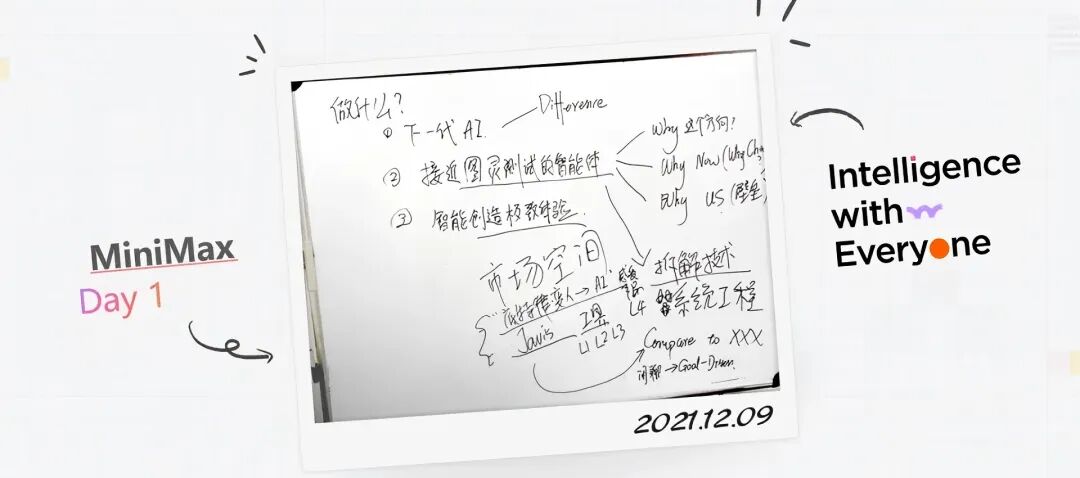 做什么?
① 下一代 AI
Difference
② 接近图灵测试的智能体
Why 这个方向?
Why Now (Why Ch
Why US (壁垒
③ 智能创造极致体验
市场空间
拆解技术
系统工程
变人→AI
Javis
工具
L1 L2 L3
L4
Compare to XXX
闲聊→Goal-Driven
2021.12.09
MiniMax
Day 1
Intelligence
with
Everyone